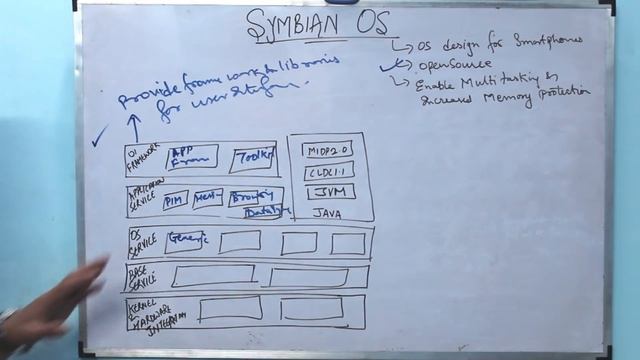 SYMBIAN OS
OS design for Smartphones
OpenSource
Enable Multi tasking &
Increased Memory Protection
Provide framework & libraries
for user
UI FRAMEWORK
APP
Fram
Toolkit
APPLICATION SERVICE
PIM
Mess
Browsing
Datalin
MIDP 2.0
CLDC 1.1
JVM
JAVA
OS SERVICE
Generic
BASE SERVICE
KERNEL
&
HARDWARE